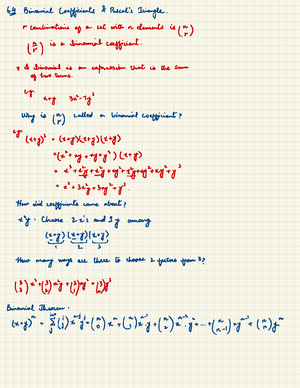 6.4 Binomial Coefficients & Pascal's Triangle.
r combinations of a set with n elements is (n r)
(n r) is a binomial coefficient.
* A binomial is an expression that is the sum
of two terms.
eg
x+y 3x²-7y³
Why is (n r) called a binomial coefficient?
eg
(x+y)³ = (x+y)(x+y)(x+y)
=(x²+xy+xy+y²)(x+y)
= x³+x²y+x²y+xy²+x²y+xy²+xy²+y³
= x³+3x²y+3xy²+y³.
How did coefficients come about?
x²y - Choose 2 x's and 1 y among
(x+y) (x+y) (x+y)
1 2 3
How many ways are there to choose 2 factors from 3?
Binomial Theorem.